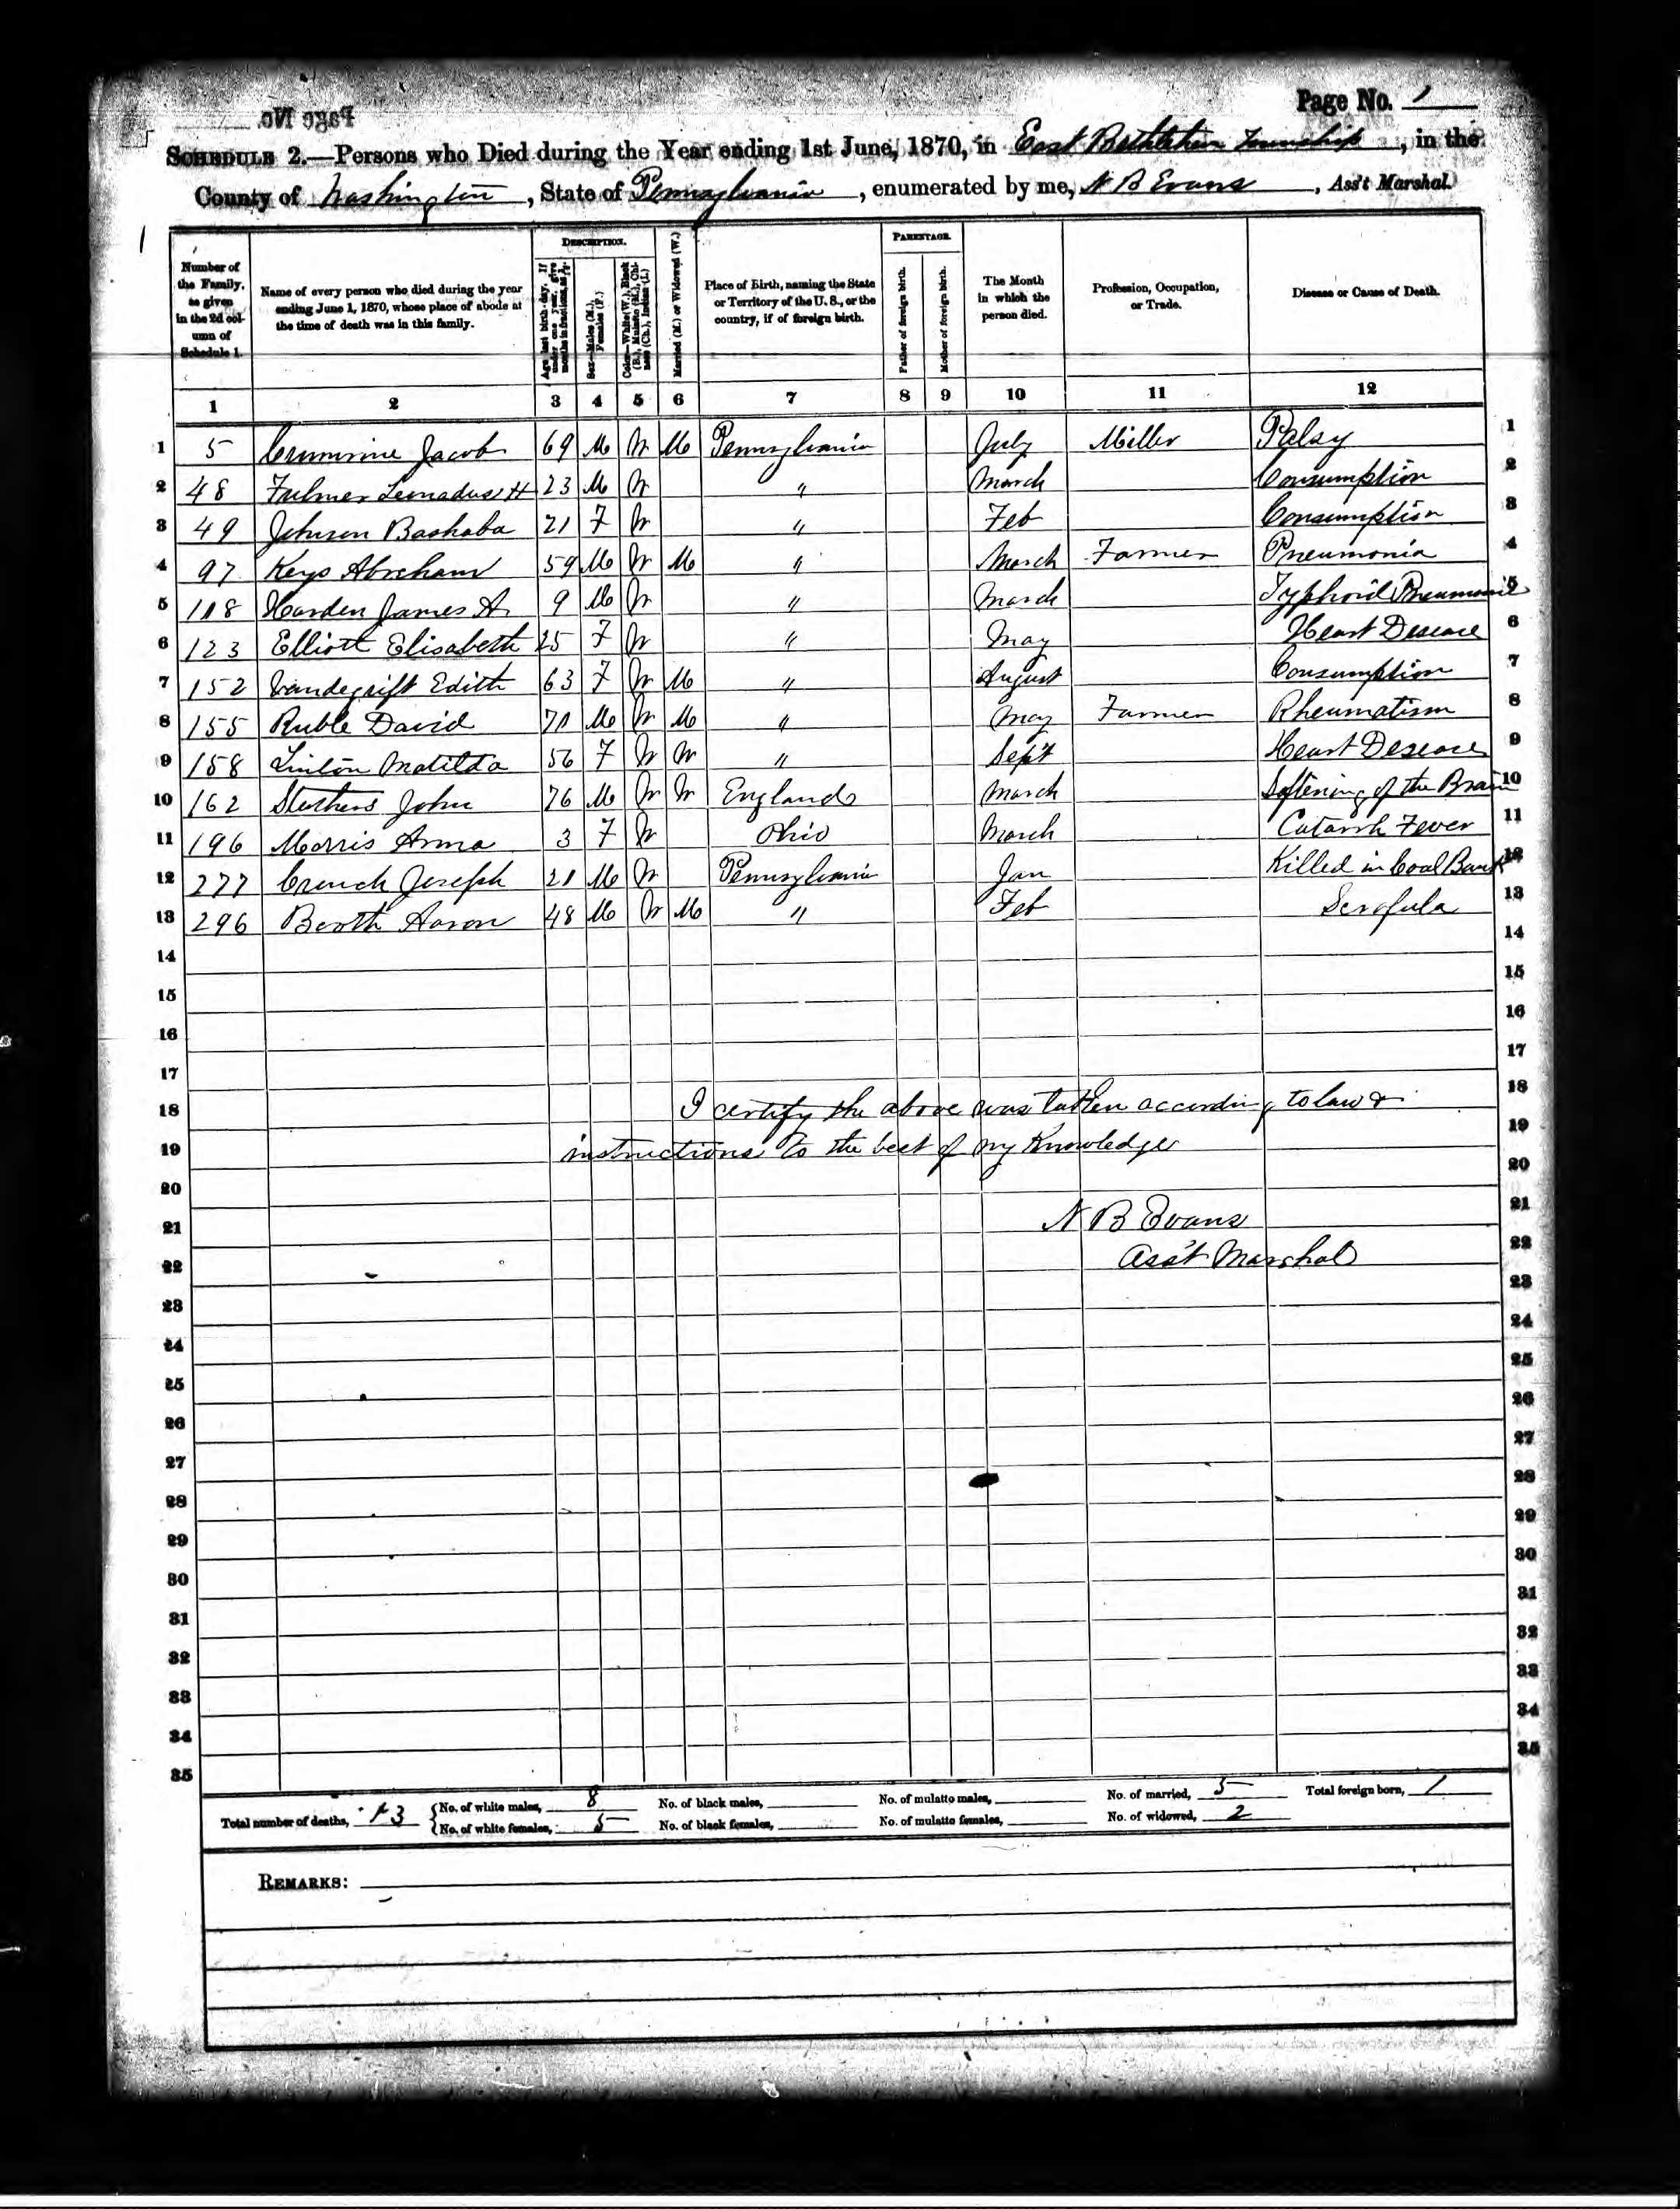 Page No. 1
Page No.
SCHEDULE 2.—Persons who Died during the Year ending 1st June, 1870, in East Bethlehem Township, in the
County of Washington, State of Pennsylvania, enumerated by me, N B Evans, Ass't Marshal.
1
Number of the Family, as given in the 2d column of Schedule 1.
Name of every person who died during the year ending June 1, 1870, whose place of abode at the time of death was in this family.
DESCRIPTION.
Age last birth-day. If under one year, give months in fractions, as
Sex—Males (M.), Females (F.)
Color—White (W.), Black (B.), Mulatto (M.), Chinese (Ch.), Indian (I.)
Married (M.) or Widowed (W.)
Place of Birth, naming the State or Territory of the U. S., or the country, if of foreign birth.
PARENTAGE.
Father of foreign birth.
Mother of foreign birth.
The Month in which the person died.
Profession, Occupation, or Trade.
Disease or Cause of Death.
1 2 3 4 5 6 7 8 9 10 11 12
1 5 Crumrine Jacob 69 M W M Pennsylvania July Miller Palsy 1
2 48 Fulmer H 23 M W " March Consumption 2
3 49 Johnson Bashaba 21 F W " Feb Consumption 3
4 97 Keys Abraham 59 M W M " March Farmer Pneumonia 4
5 118 Harden James A. 9 M W " March Typhoid Pneumonia 5
6 123 Elliott Elisabeth 25 F W " May Heart Desease 6
7 152 Vandegrift Edith 63 F W M " August Consumption 7
8 155 Ruble David 71 M W M " May Farmer Rheumatism 8
9 158 Linton Matilda 56 F W W " Sept Heart Desease 9
10 162 Stephens John 76 M W W England March Softening of the Brain 10
11 196 Morris Anna 3 F W Ohio March Catarrh Fever 11
12 277 Crench Joseph 21 M W Pennsylvania Jan Killed in Coal Bank 12
13 296 Booth Aaron 48 M W M " Feb Scrofula 13
14 14
15 15
16 16
17 17
18 I certify the above was taken according to law & 18
19 instructions to the best of my Knowledge 19
20 20
21 N B Evans 21
22 Ass't Marshal 22
23 23
24 24
25 25
26 26
27 27
28 28
29 29
30 30
31 31
32 32
33 33
34 34
35 35
Total number of deaths, 13 No. of white males, 8 No. of black males, No. of mulatto males, No. of married, 5 Total foreign born, 1
No. of white females, 5 No. of black females, No. of mulatto females, No. of widowed, 2
REMARKS: